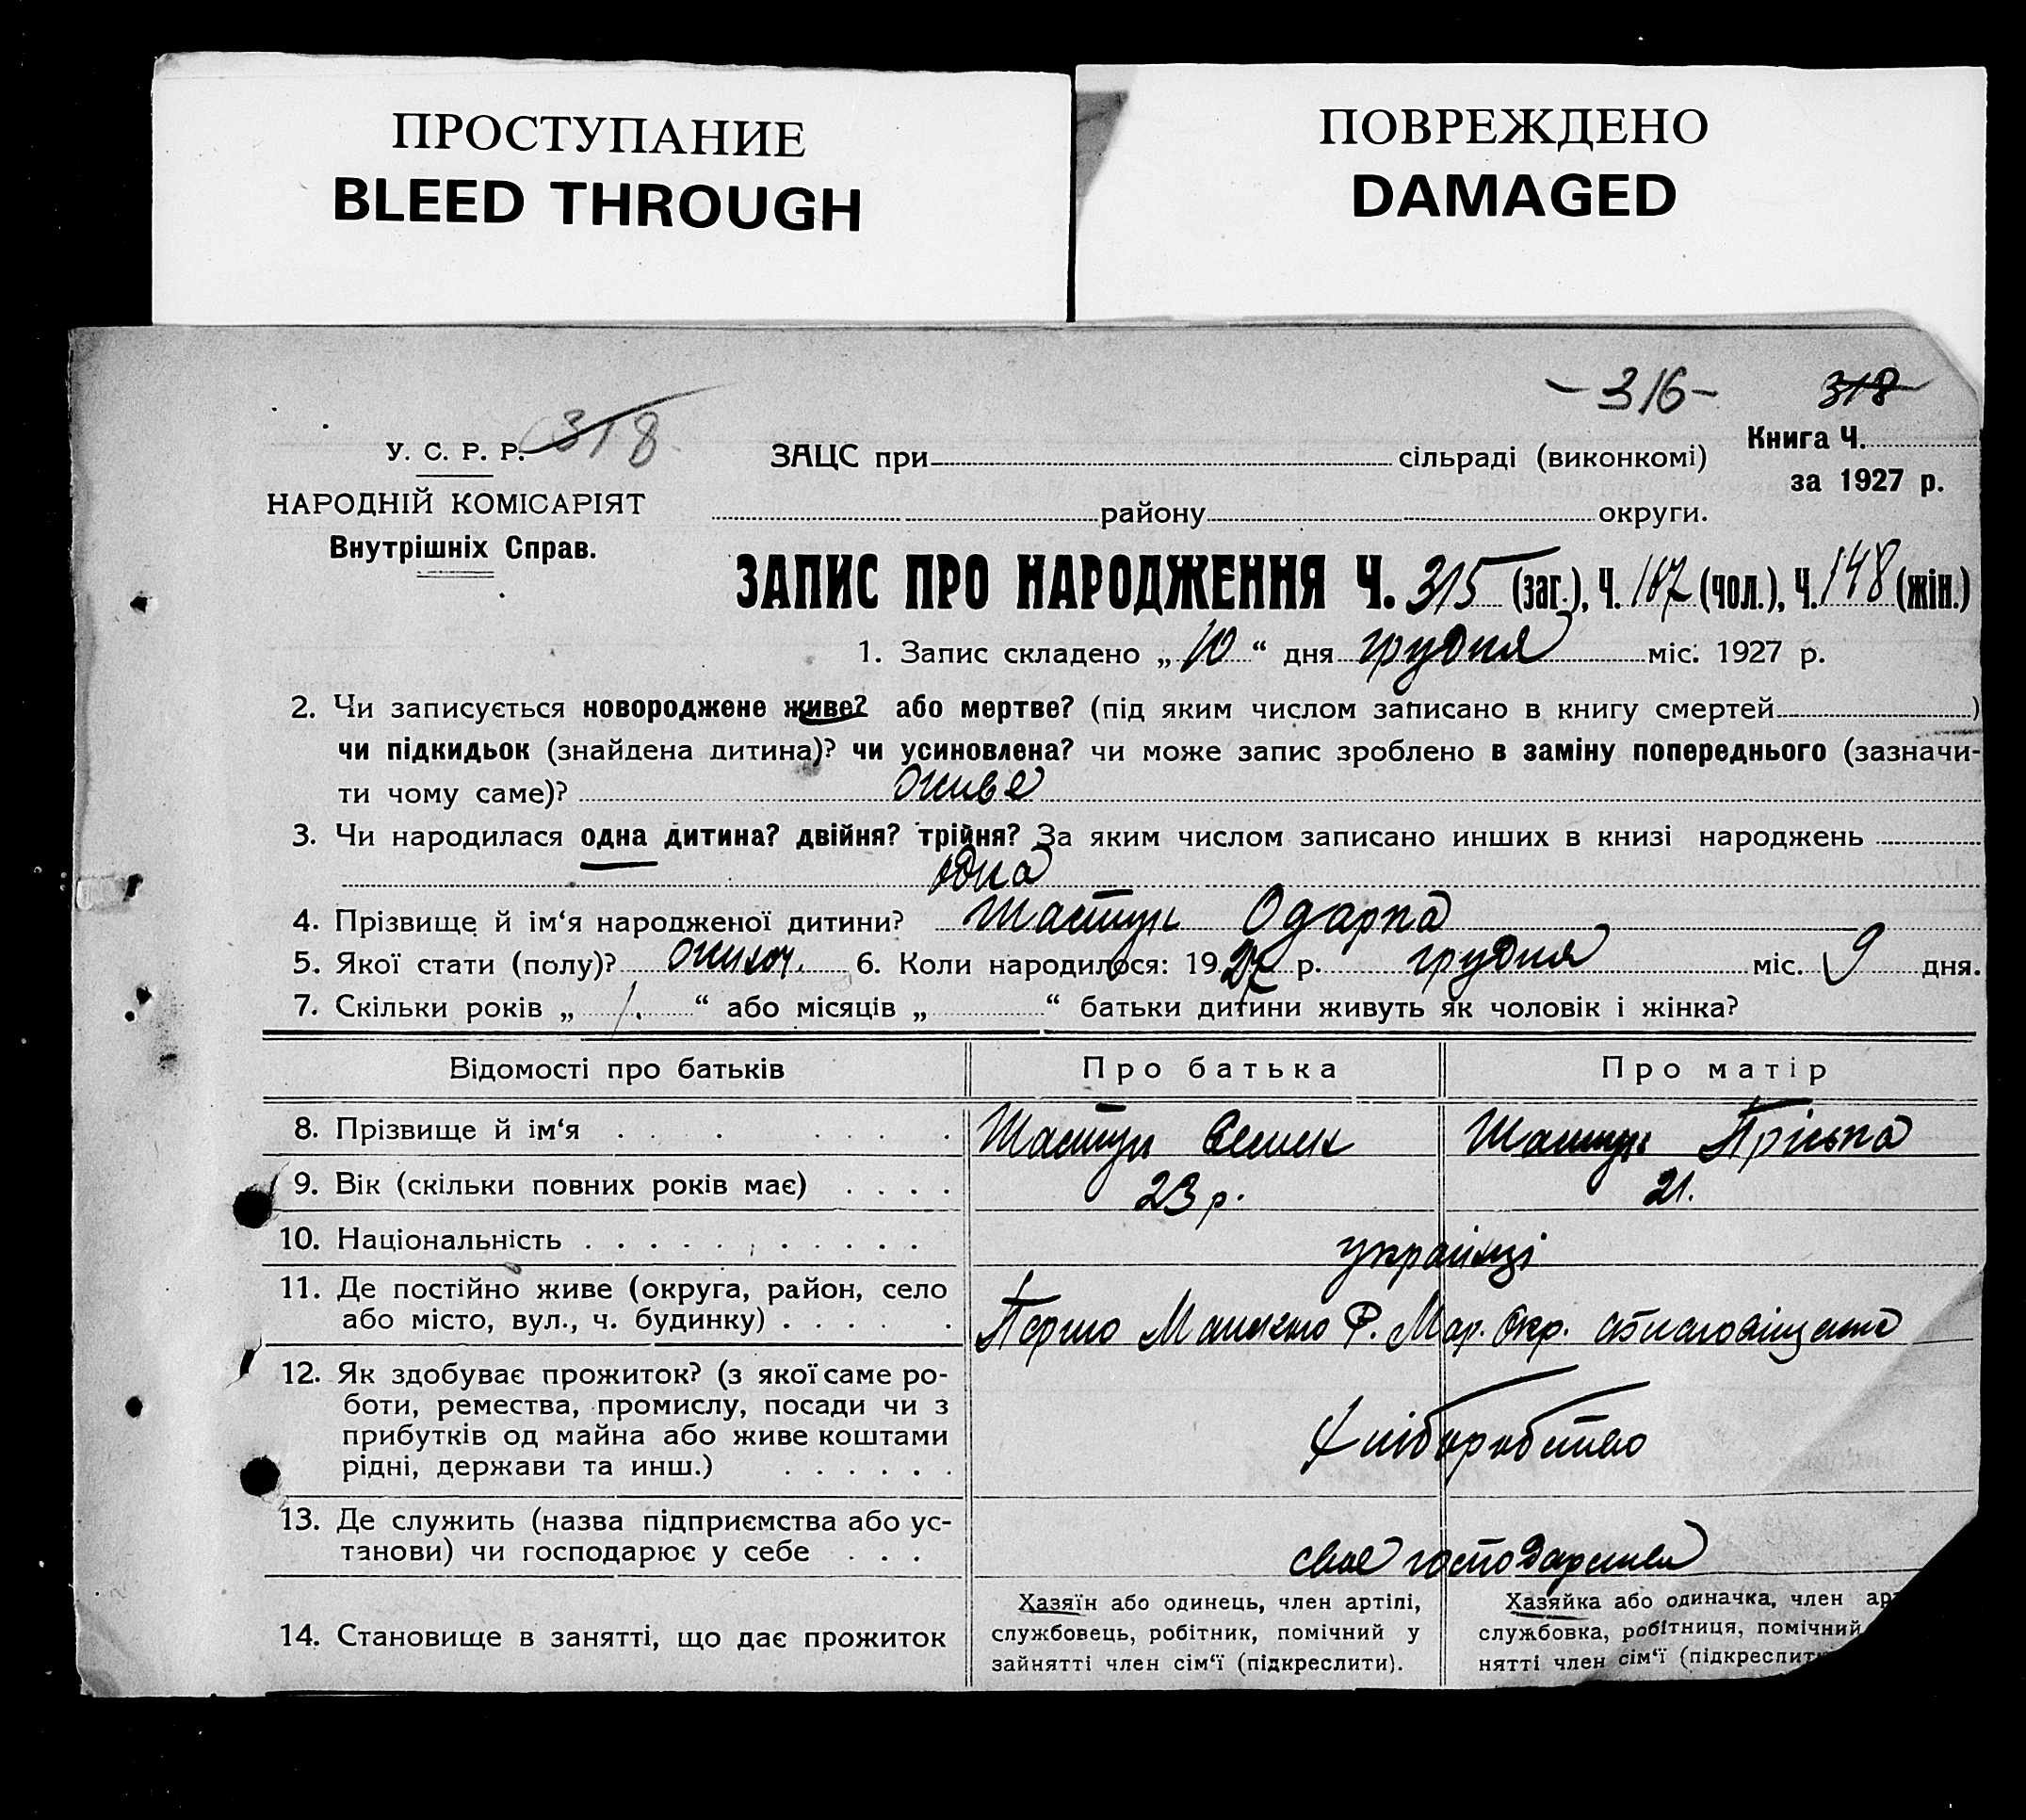 ПРОСТУПАНИЕ
BLEED THROUGH
ПОВРЕЖДЕНО
DAMAGED
-316- 318
У. С. Р. Р. 318
ЗАЦС при сільраді (виконкомі) Книга Ч.
за 1927 р.
НАРОДНІЙ КОМІСАРІЯТ
району округи.
Внутрішніх Справ.
ЗАПИС ПРО НАРОДЖЕННЯ Ч. 315 (заг.), Ч. 167 (чол.), Ч. 148 (жін.)
1. Запис складено „ 10 “ дня грудня міс. 1927 р.
2. Чи записується новороджене живе? або мертве? (під яким числом записано в книгу смертей )
чи підкидьок (знайдена дитина)? чи усиновлена? чи може запис зроблено в заміну попереднього (зазначи-
ти чому саме)? живе
3. Чи народилася одна дитина? двійня? трійня? За яким числом записано инших в книзі народжень
одна
4. Прізвище й ім‘я народженої дитини? Шастун Одарка
5. Якої стати (полу)? жіноч. 6. Коли народилося: 1927 р. грудня міс. 9 дня.
7. Скільки років „ 1. “ або місяців „ “ батьки дитини живуть як чоловік і жінка?
Відомості про батьків Про батька Про матір
8. Прізвище й ім‘я Шастун Семен Шастун Пріська
9. Вік (скільки повних років має) 23 р. 21.
10. Національність українці
11. Де постійно живе (округа, район, село
або місто, вул., ч. будинку) Перш Р. Мар. Окр.
12. Як здобуває прожиток? (з якої саме ро-
боти, ремества, промислу, посади чи з
прибутків од майна або живе коштами
рідні, держави та инш.) Хліборобство
13. Де служить (назва підприємства або ус-
танови) чи господарює у себе своє господарство
14. Становище в занятті, що дає прожиток
Хазяїн або одинець, член артілі,
службовець, робітник, помічний у
зайнятті член сім‘ї (підкреслити).
Хазяйка або одиначка, член ар
службовка, робітниця, помічний
нятті член сім‘ї (підкреслит